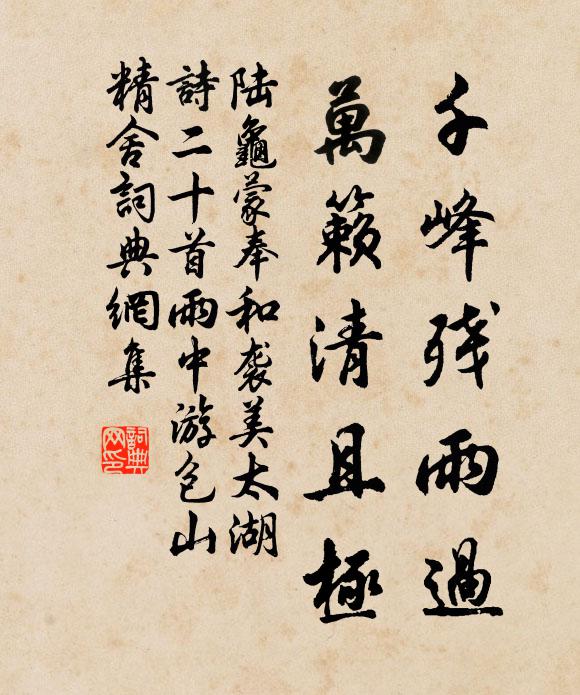 千峰残雨過
萬籟清且極
陆龜蒙奉和袭美太湖
詩二十首雨中游包山
精舍詞典網集
詞典网印